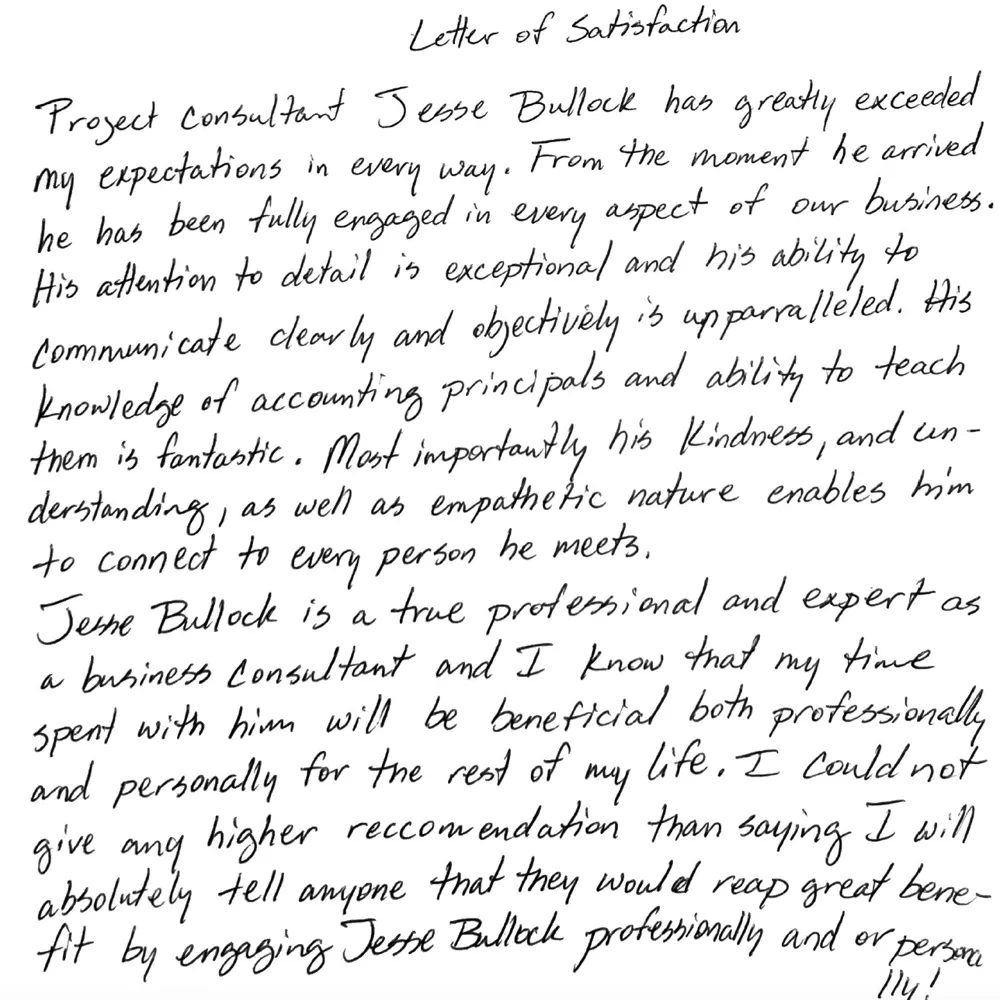 Letter of Satisfaction
Project Consultant Jesse Bullock has greatly exceeded
my expectations in every way. From the moment he arrived
he has been fully engaged in every aspect of our business.
His attention to detail is exceptional and his ability to
communicate clearly and objectively is upparralleled. His
knowledge of accounting principals and ability to teach
them is fantastic. Most importantly his kindness, and un-
derstanding, as well as empathetic nature enables him
to connect to every person he meets.
Jesse Bullock is a true professional and expert as
a business consultant and I know that my time
spent with him will be beneficial both professionally
and personally for the rest of my life. I could not
give any higher reccomendation than saying I will
absolutely tell anyone that they would reap great bene-
fit by engaging Jesse Bullock professionally and or persona
lly!